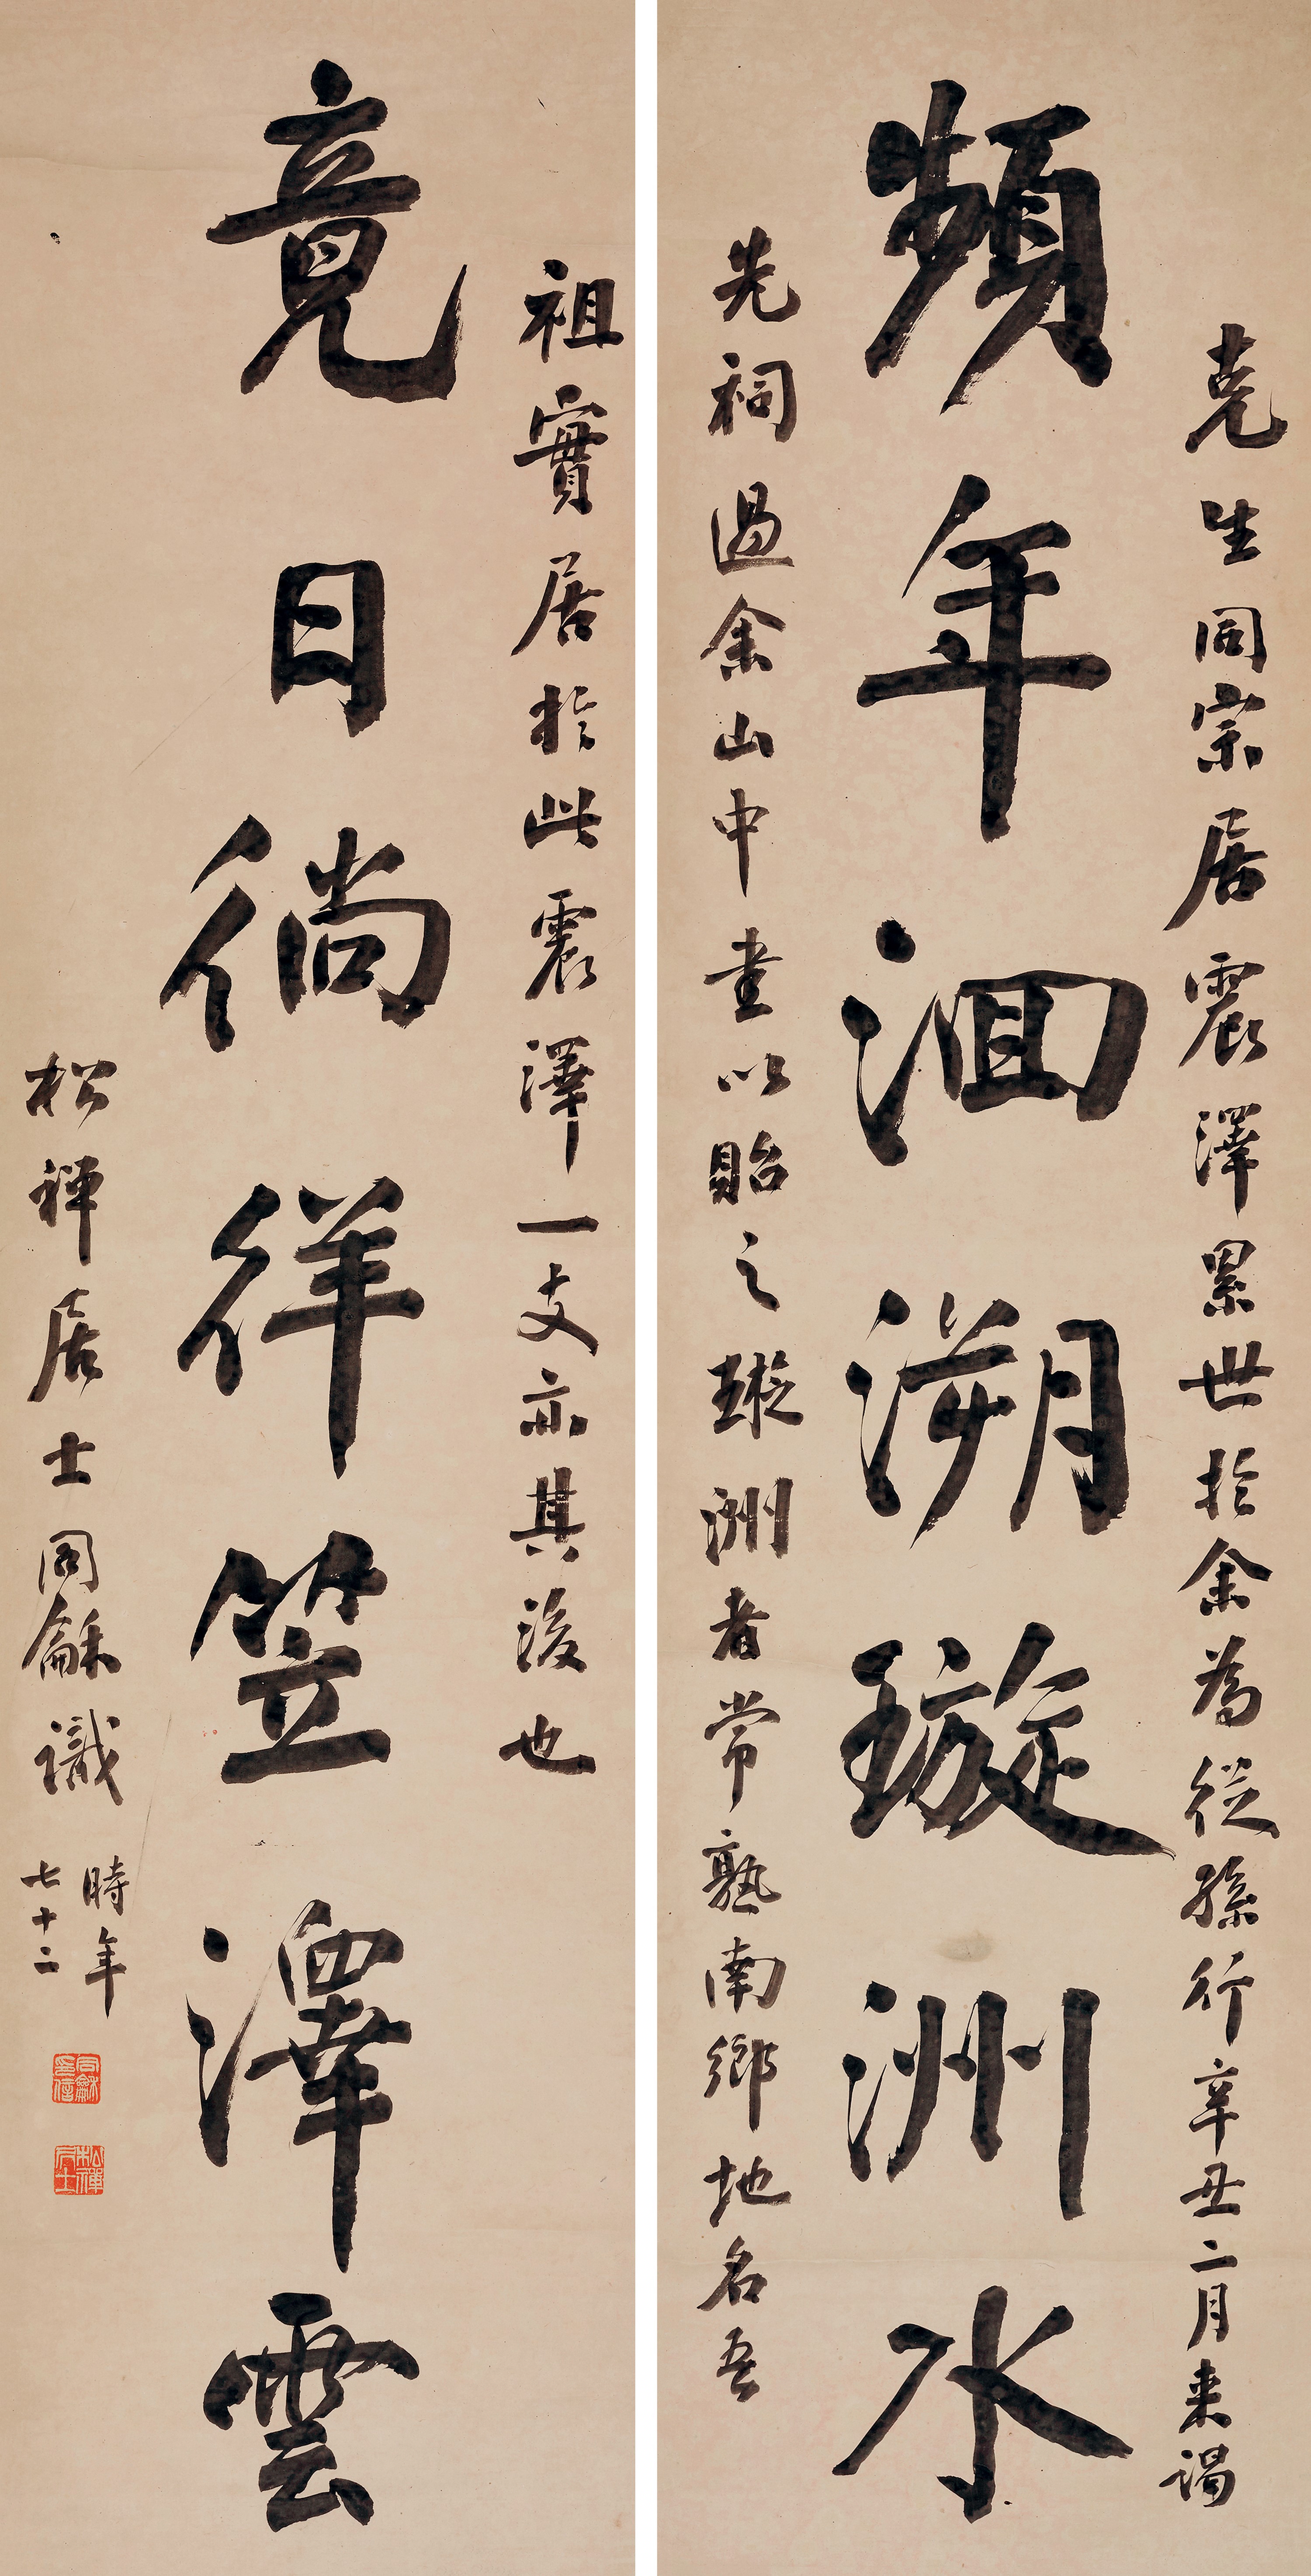 克生同宗居震澤累世於余為從孫行辛丑二月来謁
頻年洄溯璇洲水
先祠過余山中書以貽之璇洲者常熟南鄉地名吾
祖實居於此震澤一支亦其後也
竟日徜徉笠澤雲
松禪居士同龢識
時年
七十二
同龢
印信
松禪
居士